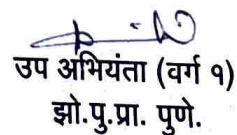 उप अभियंता (वर्ग १)
झो.पु.प्रा. पुणे.